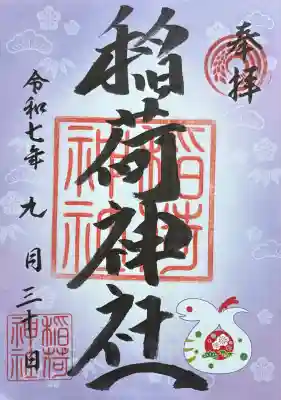 奉拝
稲荷神社
稲荷神社
令和七年九月三十日
稲荷神社